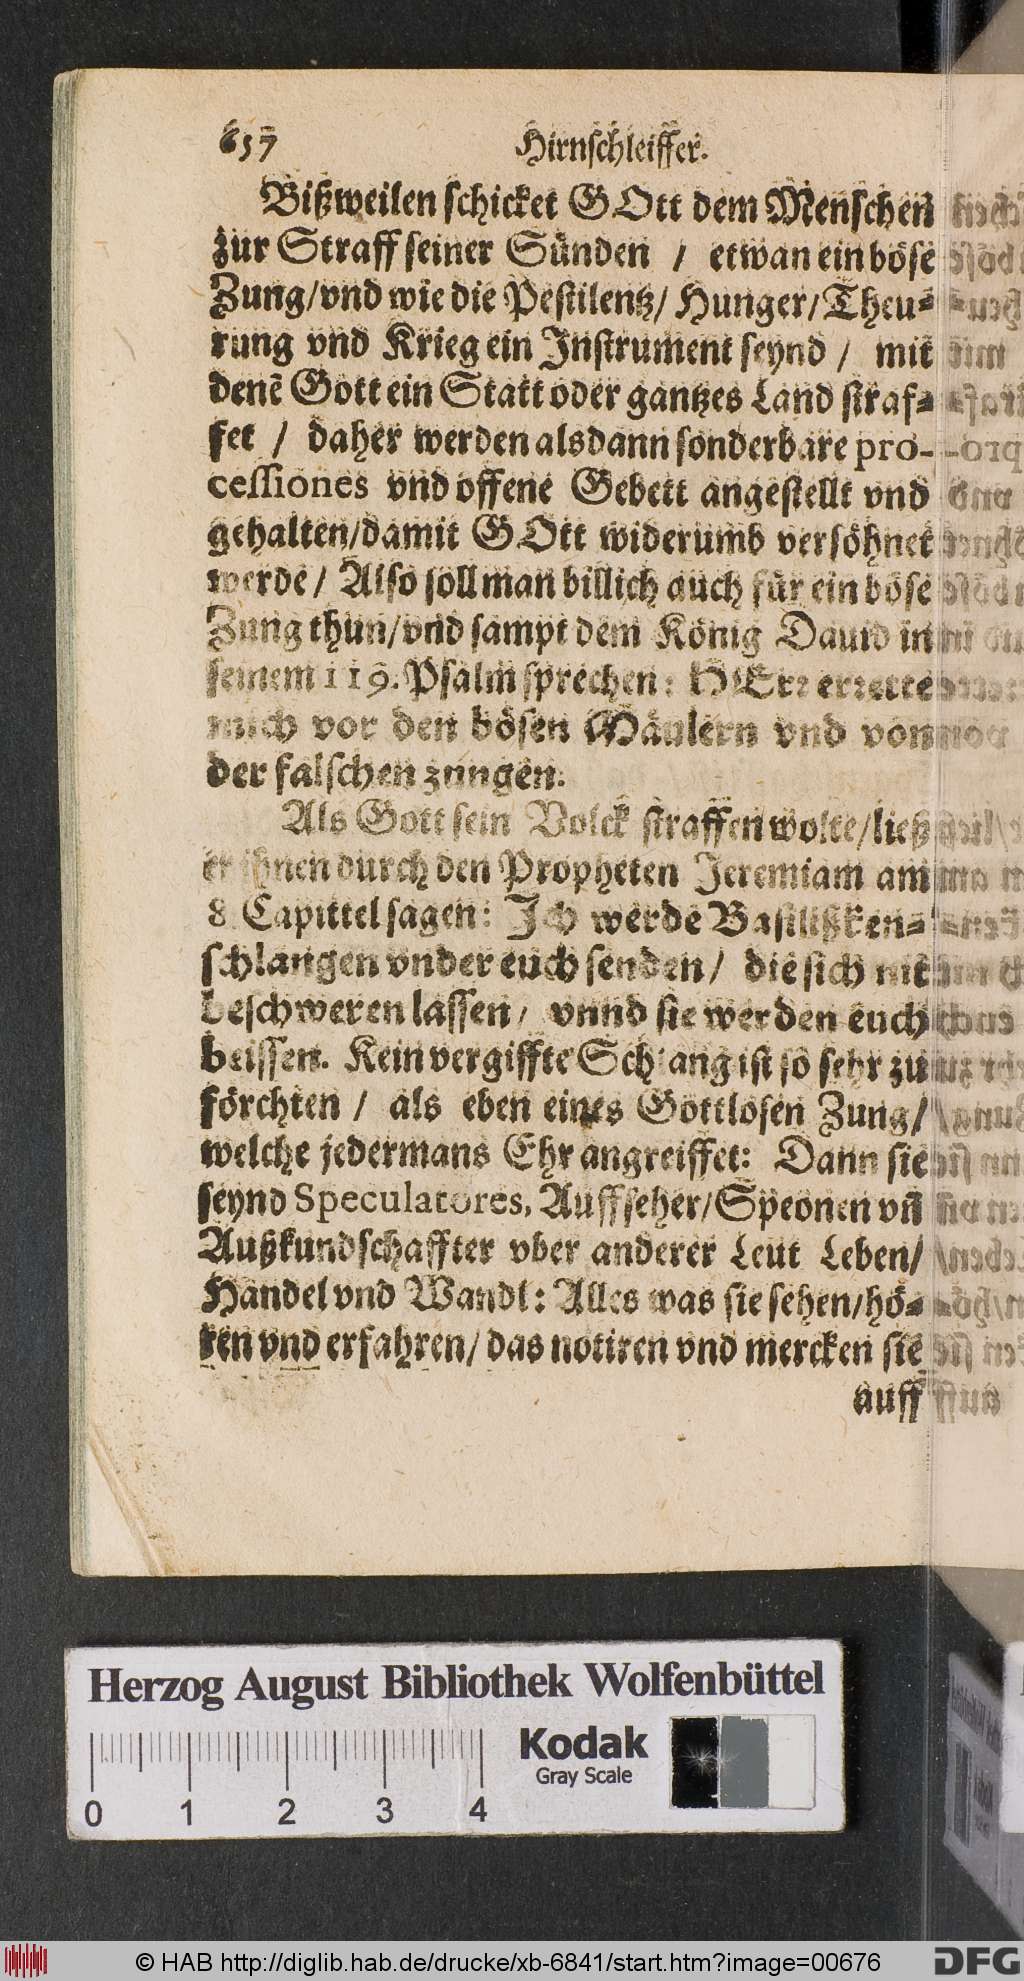 657 Hirnschleiffer.
Bißweilen schicket GOtt dem Menschen
zur Straff seiner Sünden / etwan ein böse
Zung/vnd wie die Pestilentz/ Hunger/Theu-
rung vnd Krieg ein Instrument seynd / mit
denē Gott ein Statt oder gantzes Land straf-
fet / daher werden alsdann sonderbare pro-
cessiones vnd offene Gebett angestellt vnd
gehalten/damit GOtt widerumb versöhnet
werde / Also soll man billich auch für ein böse
Zung thun/vnd sampt dem König Dauid in
seinem 119. Psalm sprechen: HErr errette
mich vor den bösen Mäulern vnd von
der falschen zungen.
Als Gott sein Volck straffen wolte/ließ
er ihnen durch den Propheten Jeremiam am
8. Capittel sagen: Ich werde Basilißken-
schlangen vnder euch senden/ die sich nit
beschweren lassen/ vnnd sie werden euch
beissen. Kein vergiffte Schlang ist so sehr zu
förchten / als eben eines Gottlosen Zung/
welche jedermans Ehr angreiffet: Dann sie
seynd Speculatores, Auffseher/Speonen vn̄
Außkundschaffter vber anderer Leut Leben/
Handel vnd Wandl: Alles was sie sehen/hö-
ren vnd erfahren/ das notiren vnd mercken sie
auff
Herzog August Bibliothek Wolfenbüttel
Kodak
Gray Scale
0 1 2 3 4
© HAB http://diglib.hab.de/drucke/xb-6841/start.htm?image=00676
DFG